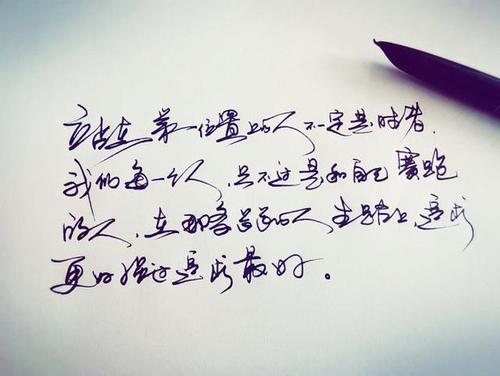 站在第一位置上的人不一定是胜者.
我们每一个人,只不过是和自己赛跑
的人,在那条长长的人生路上,追求
更好强过追求最好。